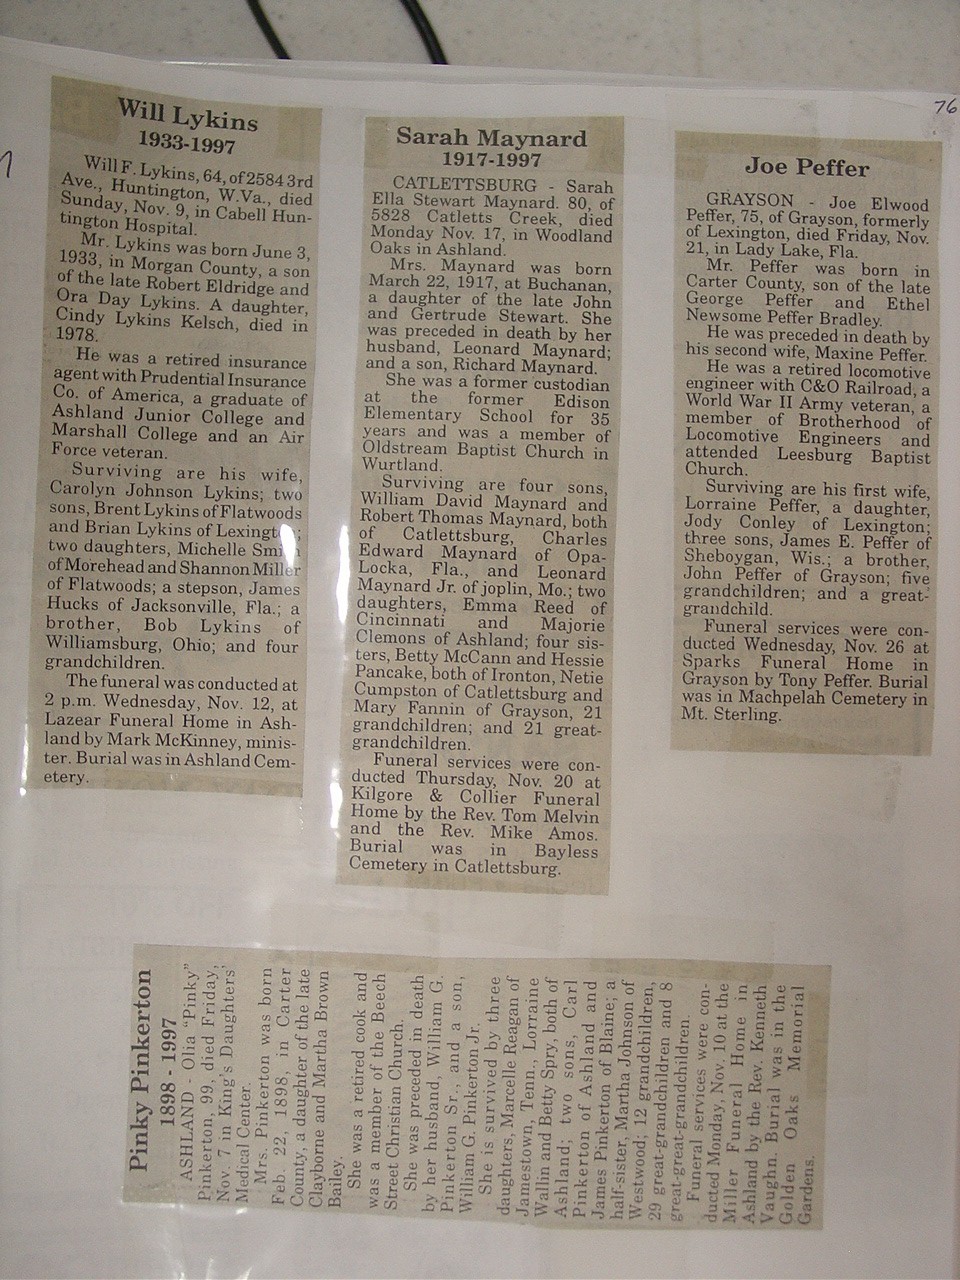 76
Will Lykins
1933-1997
Will F. Lykins, 64, of 2584 3rd
Ave., Huntington, W.Va., died
Sunday, Nov. 9, in Cabell Hun-
tington Hospital.
Mr. Lykins was born June 3,
1933, in Morgan County, a son
of the late Robert Eldridge and
Ora Day Lykins. A daughter,
Cindy Lykins Kelsch, died in
1978.
He was a retired insurance
agent with Prudential Insurance
Co. of America, a graduate of
Ashland Junior College and
Marshall College and an Air
Force veteran.
Surviving are his wife,
Carolyn Johnson Lykins; two
sons, Brent Lykins of Flatwoods
and Brian Lykins of Lexington;
two daughters, Michelle Smith
of Morehead and Shannon Miller
of Flatwoods; a stepson, James
Hucks of Jacksonville, Fla.; a
brother, Bob Lykins of
Williamsburg, Ohio; and four
grandchildren.
The funeral was conducted at
2 p.m. Wednesday, Nov. 12, at
Lazear Funeral Home in Ash-
land by Mark McKinney, minis-
ter. Burial was in Ashland Cem-
etery.
Sarah Maynard
1917-1997
CATLETTSBURG - Sarah
Ella Stewart Maynard. 80, of
5828 Catletts Creek, died
Monday Nov. 17, in Woodland
Oaks in Ashland.
Mrs. Maynard was born
March 22, 1917, at Buchanan,
a daughter of the late John
and Gertrude Stewart. She
was preceded in death by her
husband, Leonard Maynard;
and a son, Richard Maynard.
She was a former custodian
at the former Edison
Elementary School for 35
years and was a member of
Oldstream Baptist Church in
Wurtland.
Surviving are four sons,
William David Maynard and
Robert Thomas Maynard, both
of Catlettsburg, Charles
Edward Maynard of Opa-
Locka, Fla., and Leonard
Maynard Jr. of joplin, Mo.; two
daughters, Emma Reed of
Cincinnati and Majorie
Clemons of Ashland; four sis-
ters, Betty McCann and Hessie
Pancake, both of Ironton, Netie
Cumpston of Catlettsburg and
Mary Fannin of Grayson, 21
grandchildren; and 21 great-
grandchildren.
Funeral services were con-
ducted Thursday, Nov. 20 at
Kilgore & Collier Funeral
Home by the Rev. Tom Melvin
and the Rev. Mike Amos.
Burial was in Bayless
Cemetery in Catlettsburg.
Joe Peffer
GRAYSON - Joe Elwood
Peffer, 75, of Grayson, formerly
of Lexington, died Friday, Nov.
21, in Lady Lake, Fla.
Mr. Peffer was born in
Carter County, son of the late
George Peffer and Ethel
Newsome Peffer Bradley.
He was preceded in death by
his second wife, Maxine Peffer.
He was a retired locomotive
engineer with C&O Railroad, a
World War II Army veteran, a
member of Brotherhood of
Locomotive Engineers and
attended Leesburg Baptist
Church.
Surviving are his first wife,
Lorraine Peffer, a daughter,
Jody Conley of Lexington;
three sons, James E. Peffer of
Sheboygan, Wis.; a brother,
John Peffer of Grayson; five
grandchildren; and a great-
grandchild.
Funeral services were con-
ducted Wednesday, Nov. 26 at
Sparks Funeral Home in
Grayson by Tony Peffer. Burial
was in Machpelah Cemetery in
Mt. Sterling.
Pinky Pinkerton
1898 - 1997
ASHLAND - Olia "Pinky"
Pinkerton, 99, died Friday,
Nov. 7 in King's Daughters'
Medical Center.
Mrs. Pinkerton was born
Feb. 22, 1898, in Carter
County, a daughter of the late
Clayborne and Martha Brown
Bailey.
She was a retired cook and
was a member of the Beech
Street Christian Church.
She was preceded in death
by her husband, William G.
Pinkerton Sr., and a son,
William G. Pinkerton Jr.
She is survived by three
daughters, Marcelle Reagan of
Jamestown, Tenn., Lorraine
Wallin and Betty Spry, both of
Ashland; two sons, Carl
Pinkerton of Ashland and
James Pinkerton of Blaine; a
half-sister, Martha Johnson of
Westwood; 12 grandchildren,
29 great-grandchildren and 8
great-great-grandchildren.
Funeral services were con-
ducted Monday, Nov. 10 at the
Miller Funeral Home in
Ashland by the Rev. Kenneth
Vaughn. Burial was in the
Golden Oaks Memorial
Gardens.